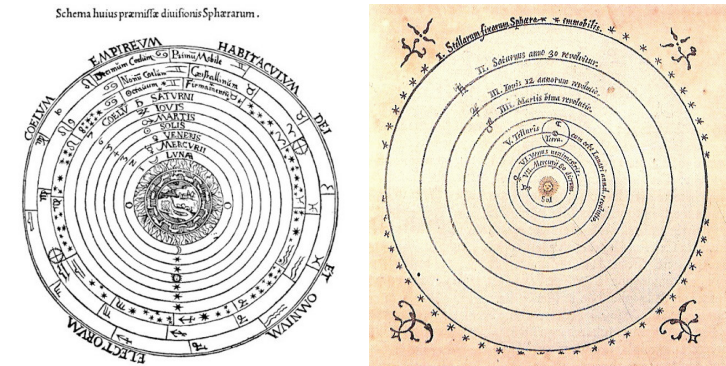 Schema huius præmissæ diuisionis Sphærarum.
COELVM EMPIREVM HABITACVLVM DEI ET OMNIVM ELECTORVM
Decimum Coelum Primũ Mobile
Nonũ Coelum Cristallinum
Octauum Firmamentũ
COELV SATVRNI
IOVIS
MARTIS
SOLIS
VENERIS
MERCVRII
LVNÆ
I. Stellarum fixarum Sphæra immobilis.
II. Saturnus anno 30 revolvitur.
III. Iovis 12 annorum revolutio.
IIII. Martis bima revolutio.
V. Telluris
Terra
cum orbe Lunari annua revolutio.
VI. Venus nonimestris.
VII. Mercurii 80 dierum
Sol